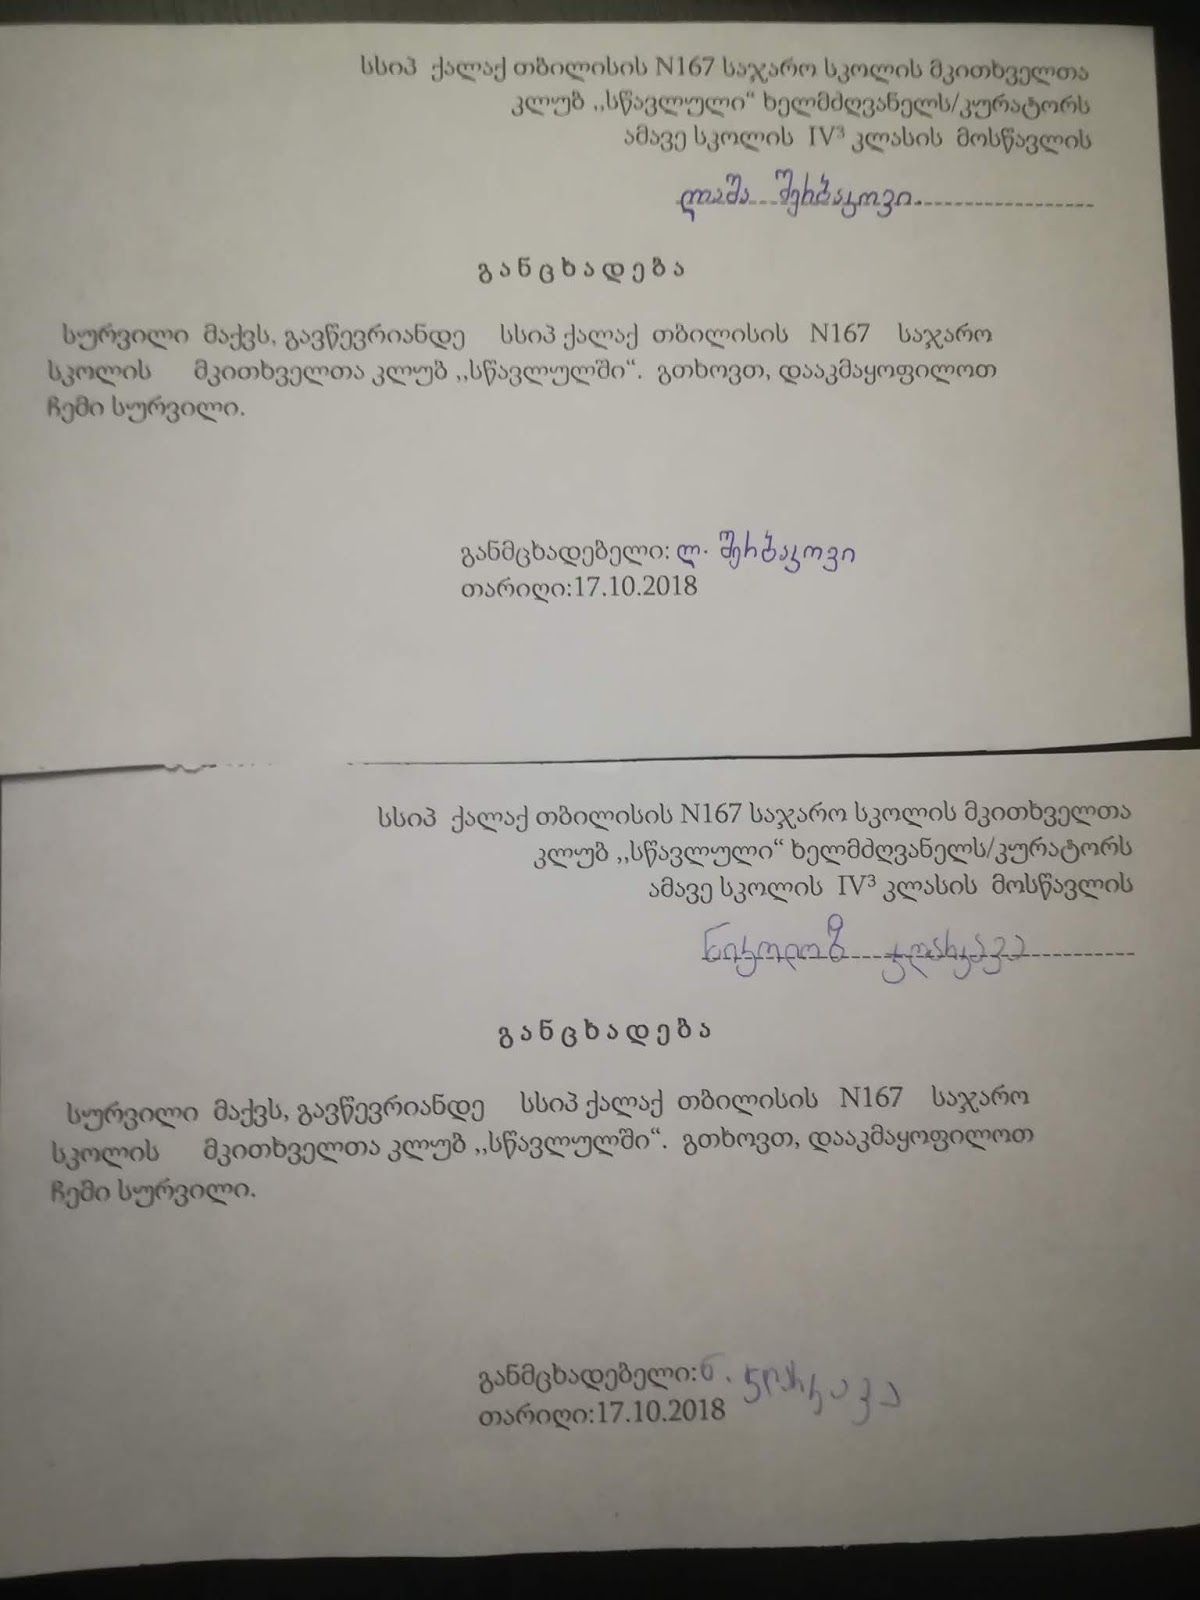 სსიპ ქალაქ თბილისის N167 საჯარო სკოლის მკითხველთა
კლუბ ,,სწავლული“ ხელმძღვანელს/კურატორს
ამავე სკოლის IV³ კლასის მოსწავლის
ლაშა შერბაკოვი
განცხადება
სურვილი მაქვს, გავწევრიანდე სსიპ ქალაქ თბილისის N167 საჯარო
სკოლის მკითხველთა კლუბ ,,სწავლულში“. გთხოვთ, დააკმაყოფილოთ
ჩემი სურვილი.
განმცხადებელი: ლ. შერბაკოვი
თარიღი:17.10.2018
სსიპ ქალაქ თბილისის N167 საჯარო სკოლის მკითხველთა
კლუბ ,,სწავლული“ ხელმძღვანელს/კურატორს
ამავე სკოლის IV³ კლასის მოსწავლის
განცხადება
სურვილი მაქვს, გავწევრიანდე სსიპ ქალაქ თბილისის N167 საჯარო
სკოლის მკითხველთა კლუბ ,,სწავლულში“. გთხოვთ, დააკმაყოფილოთ
ჩემი სურვილი.
განმცხადებელი: ნ.
თარიღი:17.10.2018